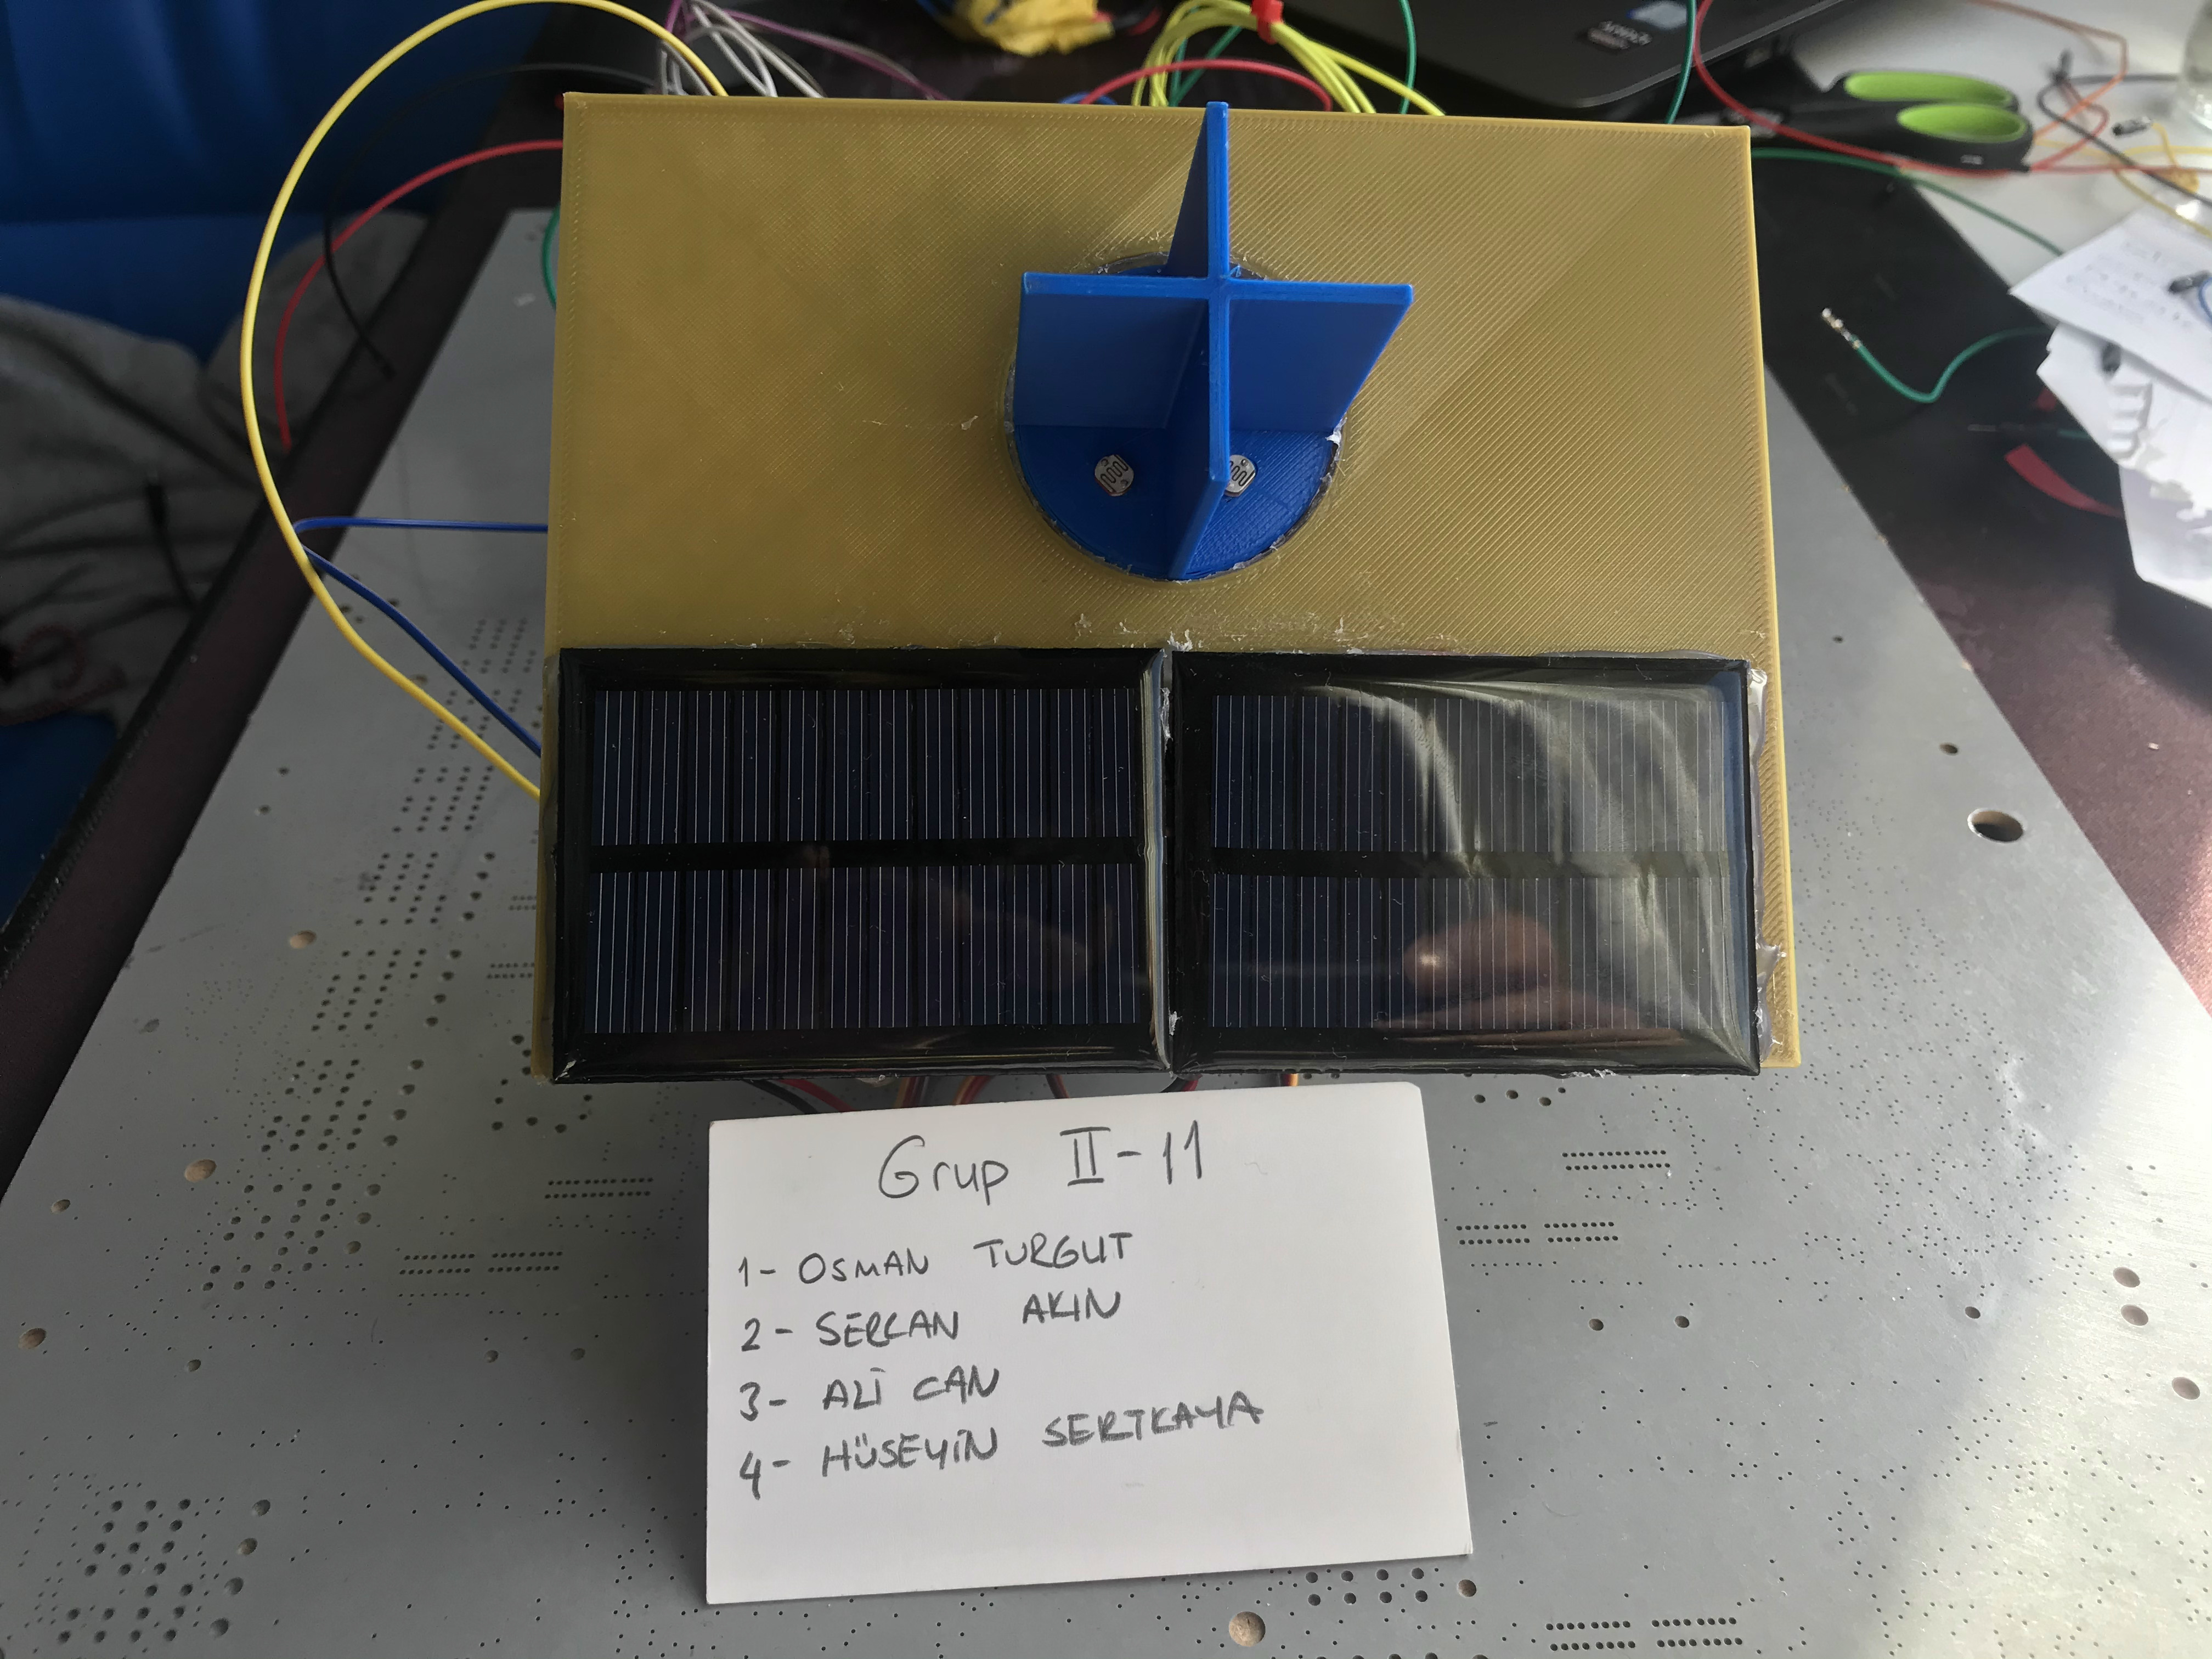 Grup II-11
1- OSMAN TURGUT
2- SERCAN AKIN
3- ALİ CAN
4- HÜSEYİN SERTKAYA